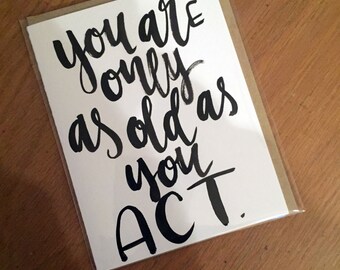 you are
only
as old as
you
ACT.